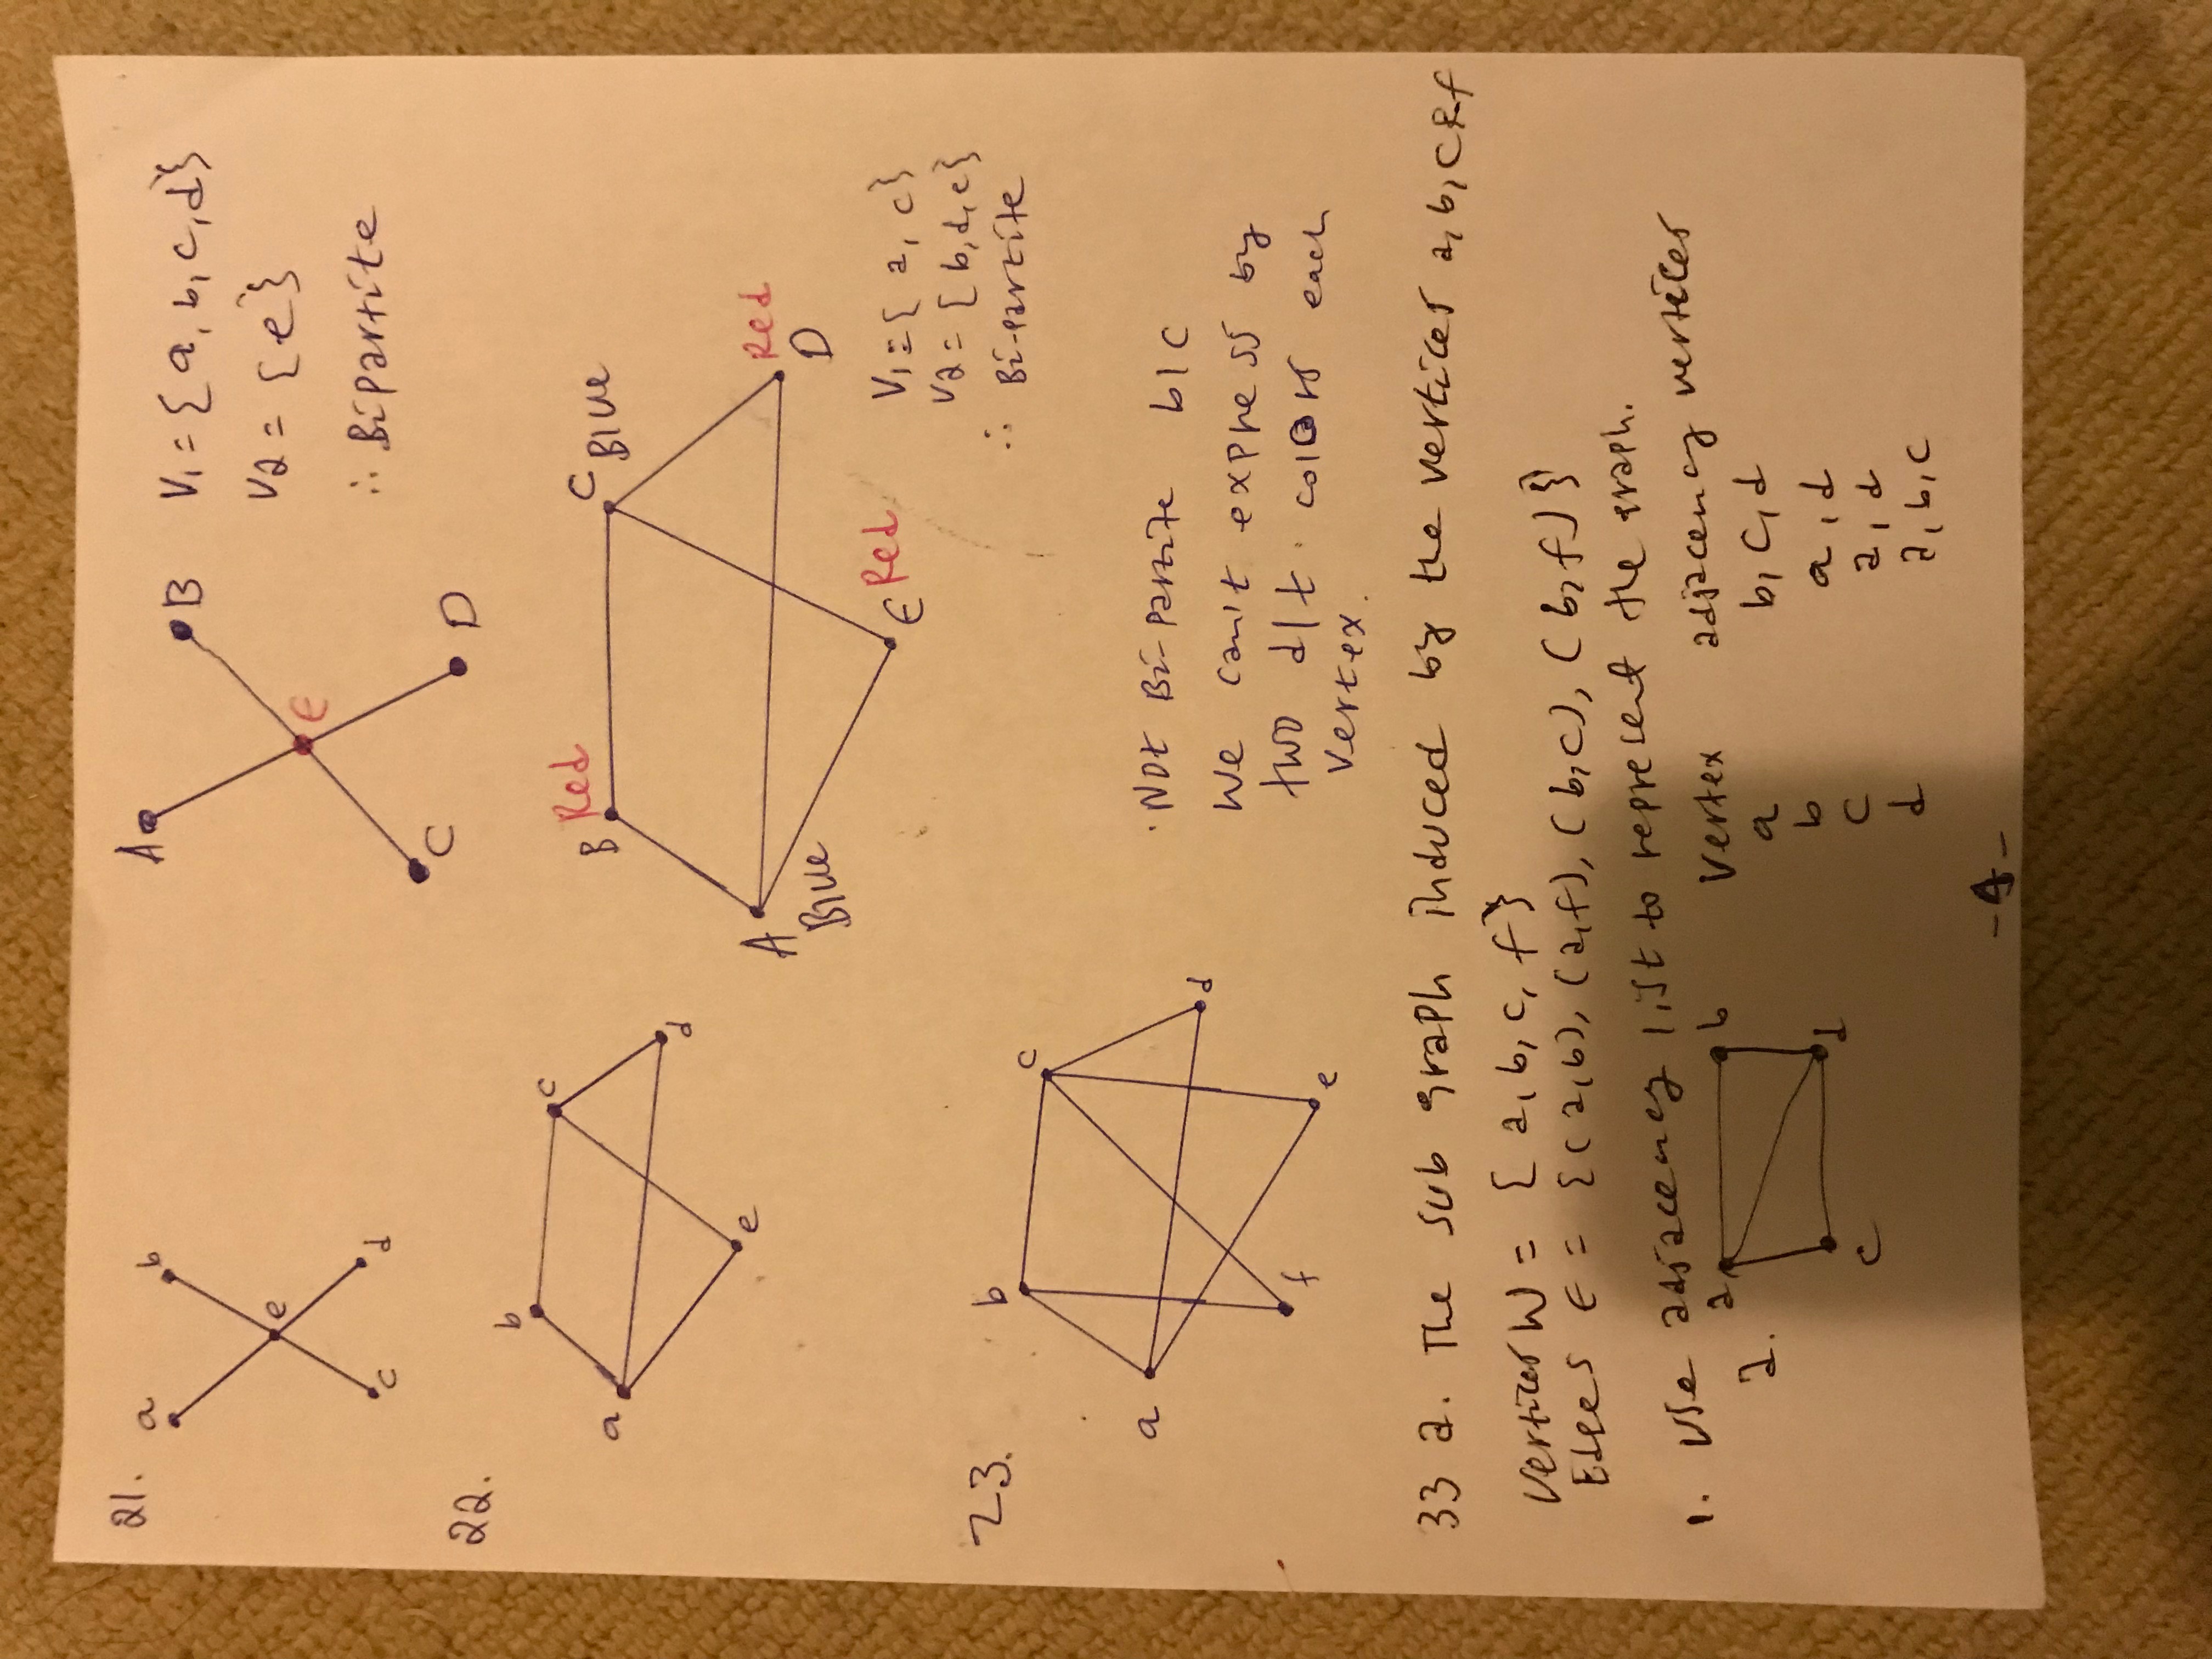 21.
a
b
e
c
d
A
B
E
C
D
V1 = { a, b, c, d}
V2 = {e}
∴ Bipartite
22.
b
c
a
d
e
B Red
C Blue
A Blue
Red D
E Red
V1 = { a, c}
V2 = {b,d,e}
∴ Bi-partite
23.
b
c
a
d
f
e
. Not Bi-partite b/c
We can't express by
two d/t colors each
Vertex.
33 a. The sub graph induced by the vertices a, b, c & f
Vertices W = { a, b, c, f}
Edges E = {(a,b), (a,f), (b,c), (b,f)}
1. Use adjacency list to represent the graph.
a.
a
b
c
d
Vertex adjacency vertices
a b, c, d
b a, d
c a, d
d a, b, c
-4-